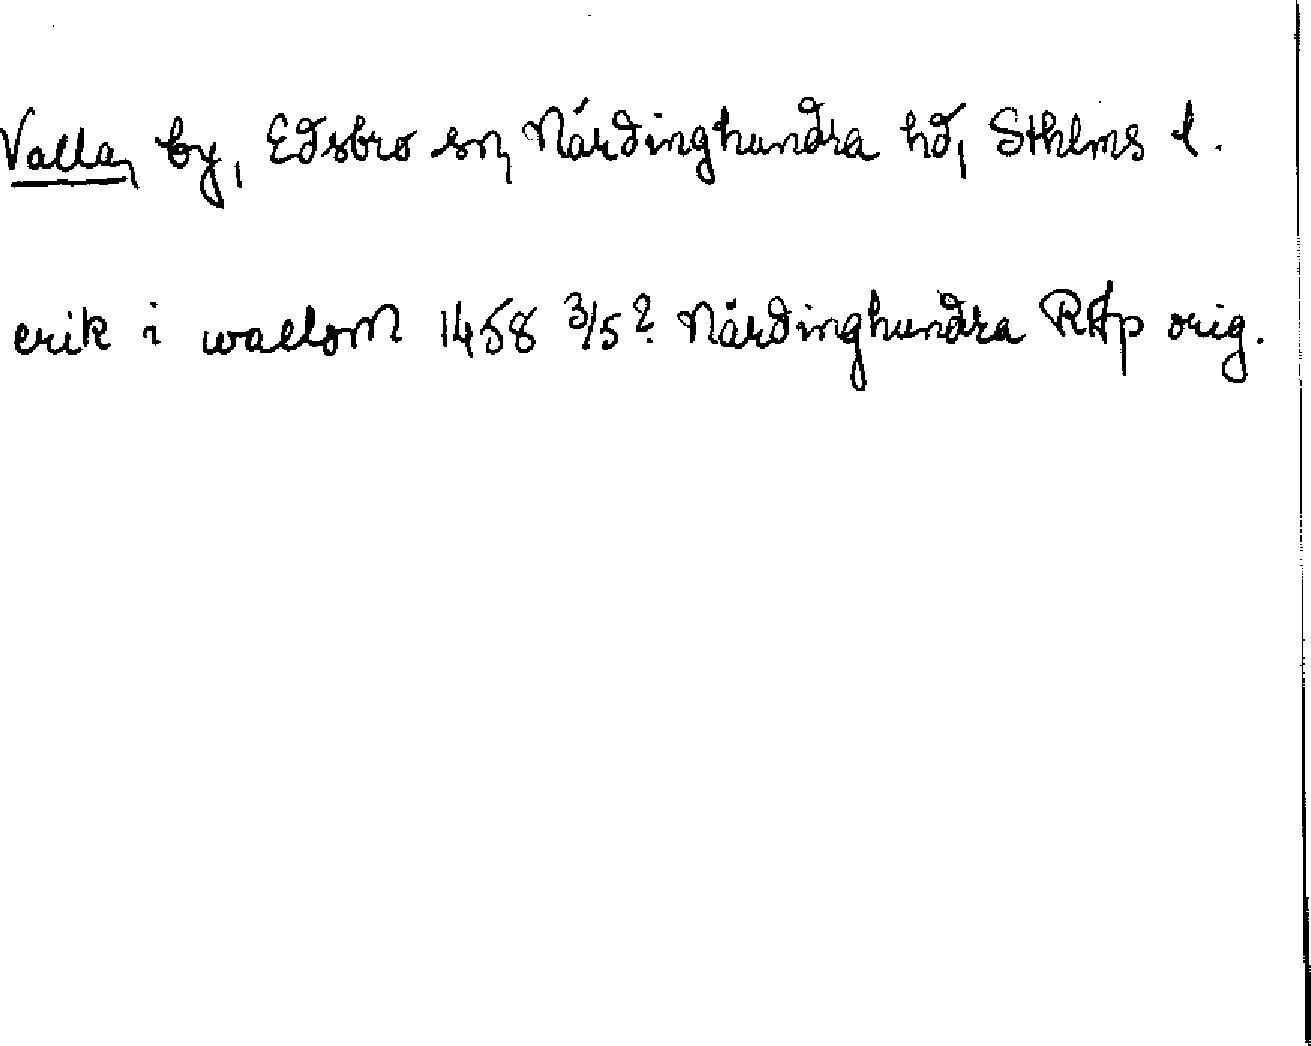 Valla, by, Edsbro sn, Närdinghundra hd, Sthlms l.
erik i wallom 1458 3/5? Närdinghundra RAp orig.